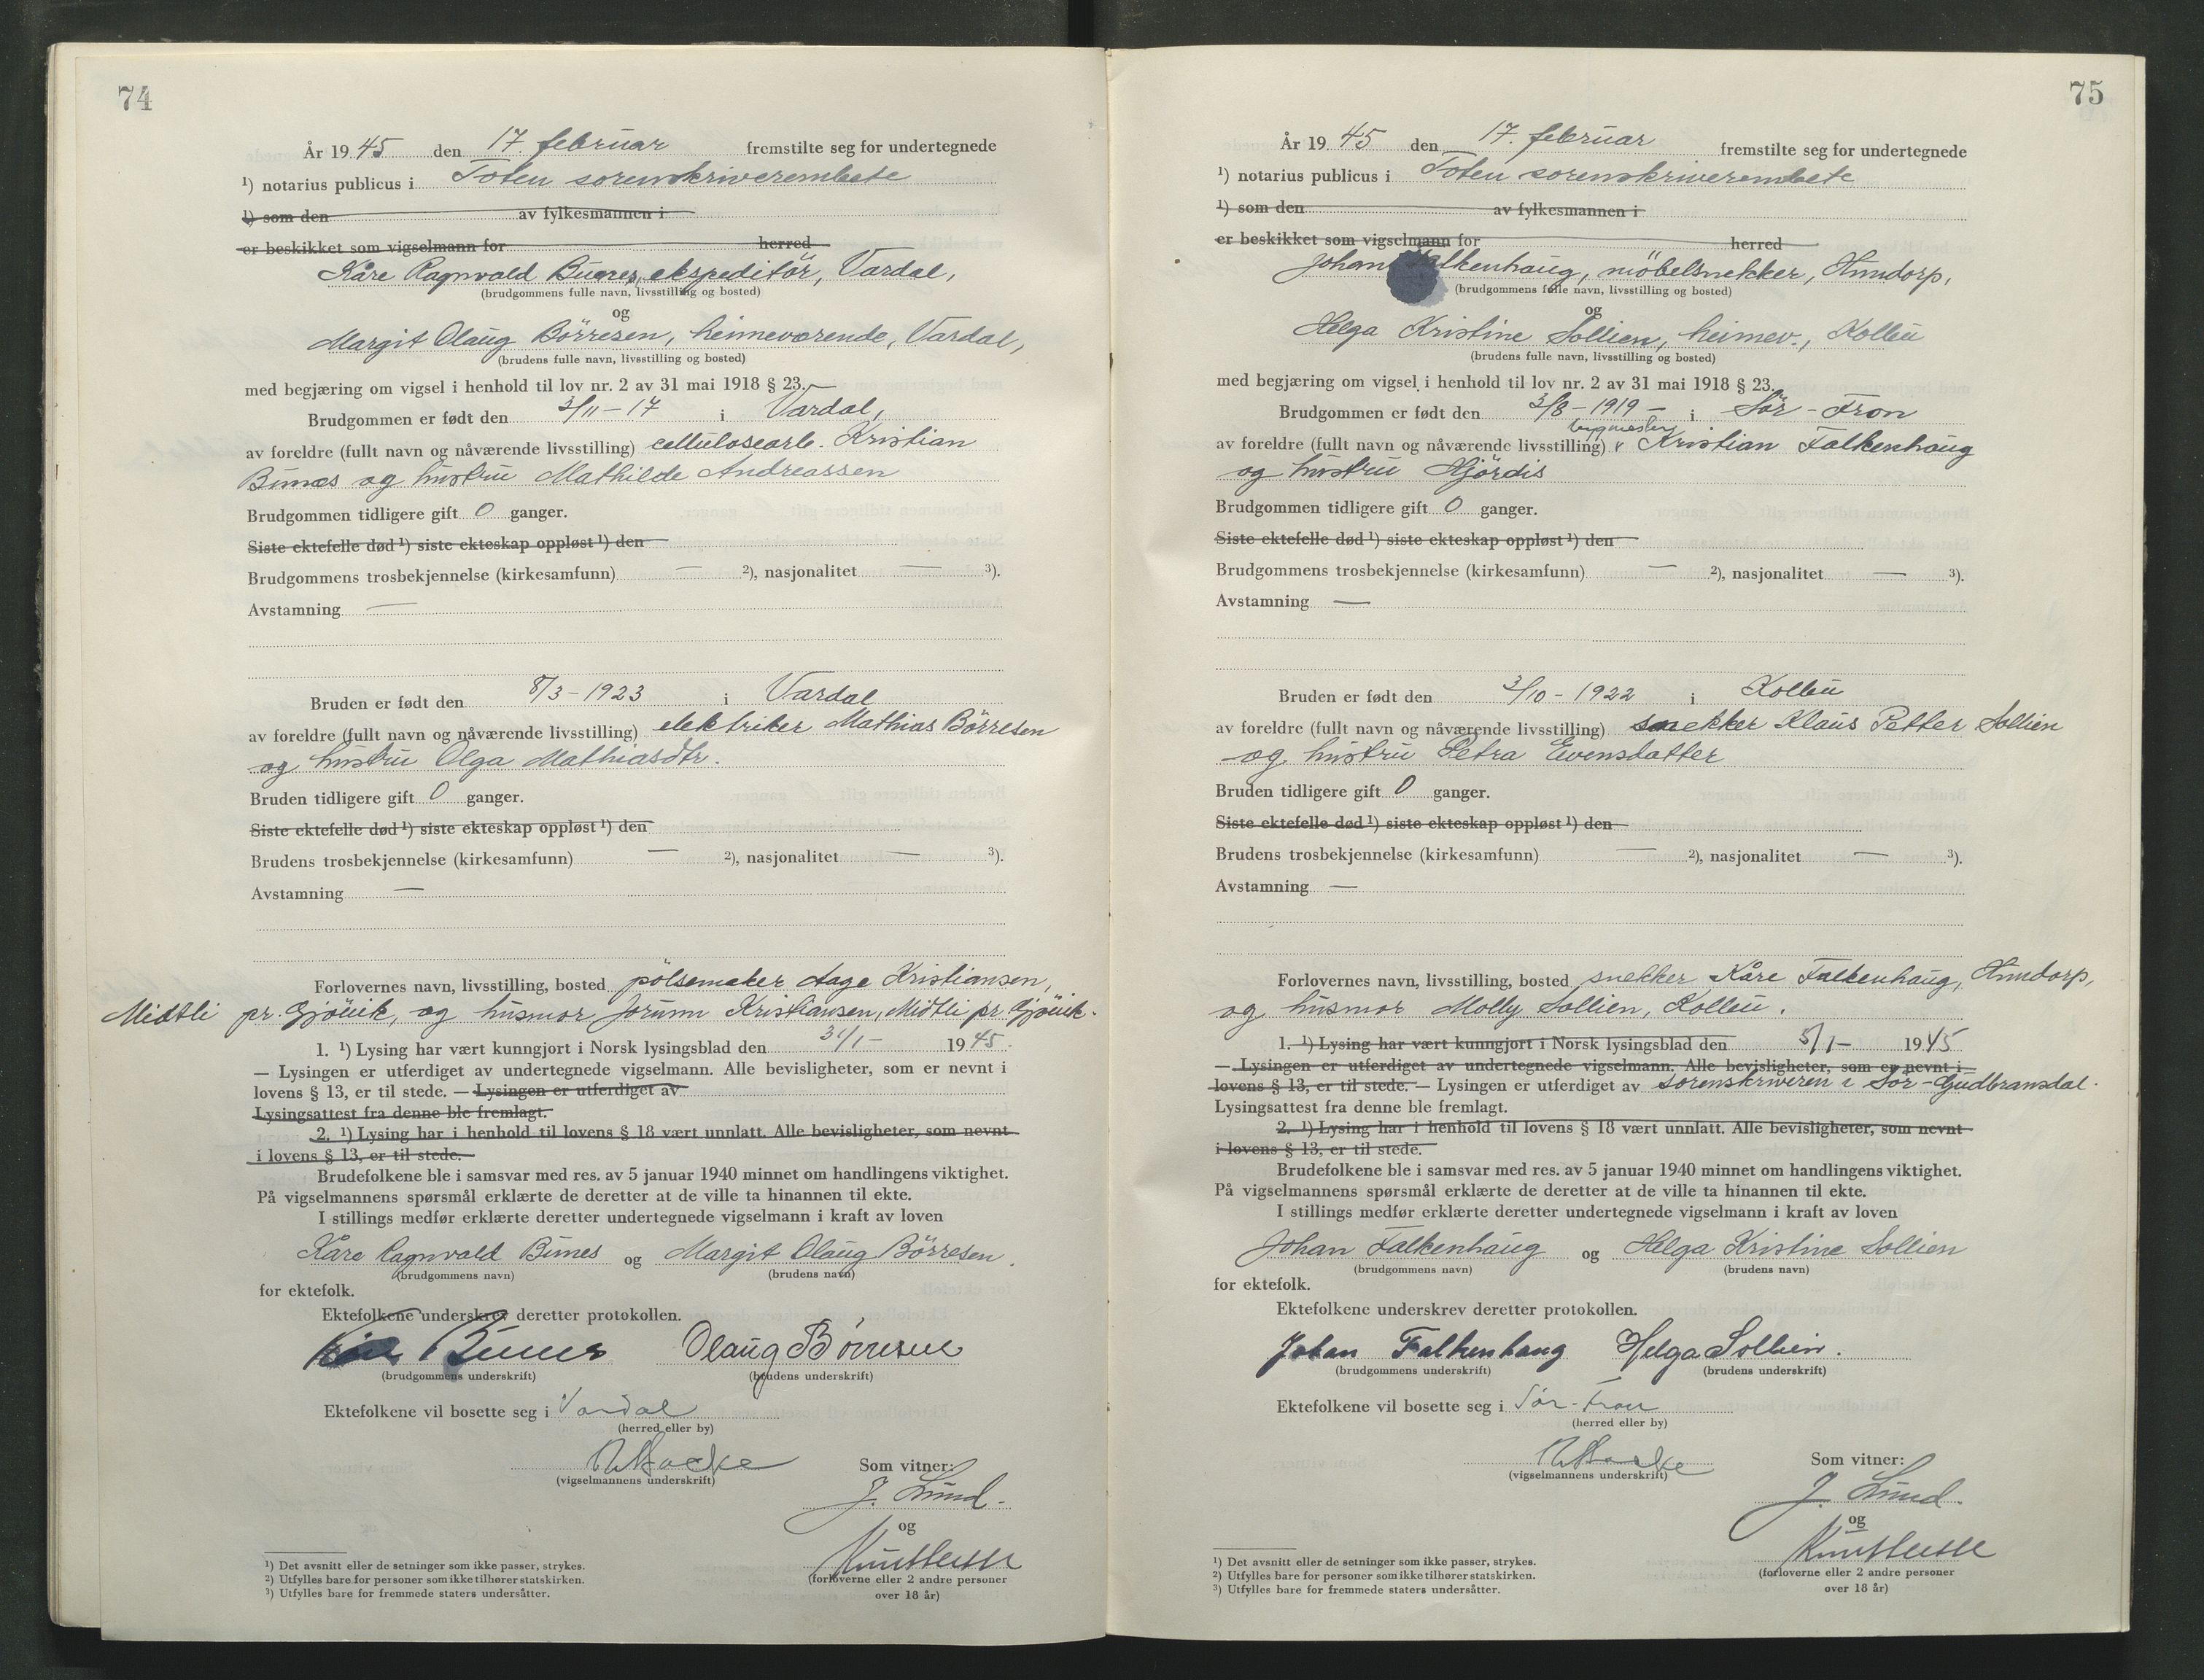 74
År 1945 den 17. februar fremstilte seg for undertegnede
¹) notarius publicus i Toten sorenskriverembete
¹) som den av fylkesmannen i
er beskikket som vigselmann for herred
Kåre Ragnvald Bunes, ekspeditör, Vardal,
(brudgommens fulle navn, livsstilling og bosted)
og
Margit Olaug Börresen, heimeværende, Vardal,
(brudens fulle navn, livsstilling og bosted)
med begjæring om vigsel i henhold til lov nr. 2 av 31 mai 1918 § 23.
Brudgommen er født den 3/11-17 i Vardal,
av foreldre (fullt navn og nåværende livsstilling) cellulosearb. Kristian
Bunes og hustru Mathilde Andreassen
Brudgommen tidligere gift 0 ganger.
Siste ektefelle død ¹) siste ekteskap oppløst ¹) den
Brudgommens trosbekjennelse (kirkesamfunn) — ²), nasjonalitet — ³).
Avstamning —
Bruden er født den 8/3-1923 i Vardal
av foreldre (fullt navn og nåværende livsstilling) elektriker Mathias Börresen
og hustru Olga Mathiasdtr.
Bruden tidligere gift 0 ganger.
Siste ektefelle død ¹) siste ekteskap oppløst ¹) den
Brudens trosbekjennelse (kirkesamfunn) — ²), nasjonalitet — ³).
Avstamning —
Forlovernes navn, livsstilling, bosted pölsemaker Aage Kristiansen,
Midtli pr. Gjövik, og husmor Jorunn Kristiansen, Midtli pr. Gjövik.
1. ¹) Lysing har vært kunngjort i Norsk lysingsblad den 31/1- 1945.
— Lysingen er utferdiget av undertegnede vigselmann. Alle bevisligheter, som er nevnt i
lovens § 13, er til stede. — Lysingen er utferdiget av
Lysingsattest fra denne ble fremlagt.
2. ¹) Lysing har i henhold til lovens § 18 vært unnlatt. Alle bevisligheter, som nevnt
i lovens § 13, er til stede.
Brudefolkene ble i samsvar med res. av 5 januar 1940 minnet om handlingens viktighet.
På vigselmannens spørsmål erklærte de deretter at de ville ta hinannen til ekte.
I stillings medfør erklærte deretter undertegnede vigselmann i kraft av loven
Kåre Ragnvald Bunes og Margit Olaug Börresen.
(brudgommens navn) (brudens navn)
for ektefolk.
Ektefolkene underskrev deretter protokollen.
Kåre Bunes Olaug Børresen
(brudgommens underskrift) (brudens underskrift)
Ektefolkene vil bosette seg i Vardal
(herred eller by)
(vigselmannens underskrift)
Som vitner:
J. Lund.
og
(forloverne eller 2 andre personer
over 18 år)
¹) Det avsnitt eller de setninger som ikke passer, strykes.
²) Utfylles bare for personer som ikke tilhører statskirken.
³) Utfylles bare for fremmede staters undersåtter.
75
År 1945 den 17. februar fremstilte seg for undertegnede
¹) notarius publicus i Toten sorenskriverembete
¹) som den av fylkesmannen i
er beskikket som vigselmann for herred
Johan Falkenhaug, möbelsnekker, Hundorp,
(brudgommens fulle navn, livsstilling og bosted)
og
Helga Kristine Sollien, heimev., Kolbu
(brudens fulle navn, livsstilling og bosted)
med begjæring om vigsel i henhold til lov nr. 2 av 31 mai 1918 § 23.
Brudgommen er født den 3/8-1919- i Sör-Fron
bygmester
av foreldre (fullt navn og nåværende livsstilling) Kristian Falkenhaug
og hustru Hjördis
Brudgommen tidligere gift 0 ganger.
Siste ektefelle død ¹) siste ekteskap oppløst ¹) den
Brudgommens trosbekjennelse (kirkesamfunn) — ²), nasjonalitet — ³).
Avstamning —
Bruden er født den 3/10-1922 i Kolbu
av foreldre (fullt navn og nåværende livsstilling) snekker Klaus Petter Sollien
og hustru Petra Evensdatter
Bruden tidligere gift 0 ganger.
Siste ektefelle død ¹) siste ekteskap oppløst ¹) den
Brudens trosbekjennelse (kirkesamfunn) — ²), nasjonalitet — ³).
Avstamning —
Forlovernes navn, livsstilling, bosted snekker Kåre Falkenhaug, Hundorp,
og husmor Molly Sollien, Kolbu.
1. ¹) Lysing har vært kunngjort i Norsk lysingsblad den 5/1- 1945
— Lysingen er utferdiget av undertegnede vigselmann. Alle bevisligheter, som er nevnt i
lovens § 13, er til stede. — Lysingen er utferdiget av sorenskriveren i Sör-Gudbransdal.
Lysingsattest fra denne ble fremlagt.
2. ¹) Lysing har i henhold til lovens § 18 vært unnlatt. Alle bevisligheter, som nevnt
i lovens § 13, er til stede.
Brudefolkene ble i samsvar med res. av 5 januar 1940 minnet om handlingens viktighet.
På vigselmannens spørsmål erklærte de deretter at de ville ta hinannen til ekte.
I stillings medfør erklærte deretter undertegnede vigselmann i kraft av loven
Johan Falkenhaug og Helga Kristine Sollien
(brudgommens navn) (brudens navn)
for ektefolk.
Ektefolkene underskrev deretter protokollen.
Johan Falkenhaug Helga Sollien.
(brudgommens underskrift) (brudens underskrift)
Ektefolkene vil bosette seg i Sør-Fron
(herred eller by)
(vigselmannens underskrift)
Som vitner:
J. Lund.
og
(forloverne eller 2 andre personer
over 18 år)
¹) Det avsnitt eller de setninger som ikke passer, strykes.
²) Utfylles bare for personer som ikke tilhører statskirken.
³) Utfylles bare for fremmede staters undersåtter.